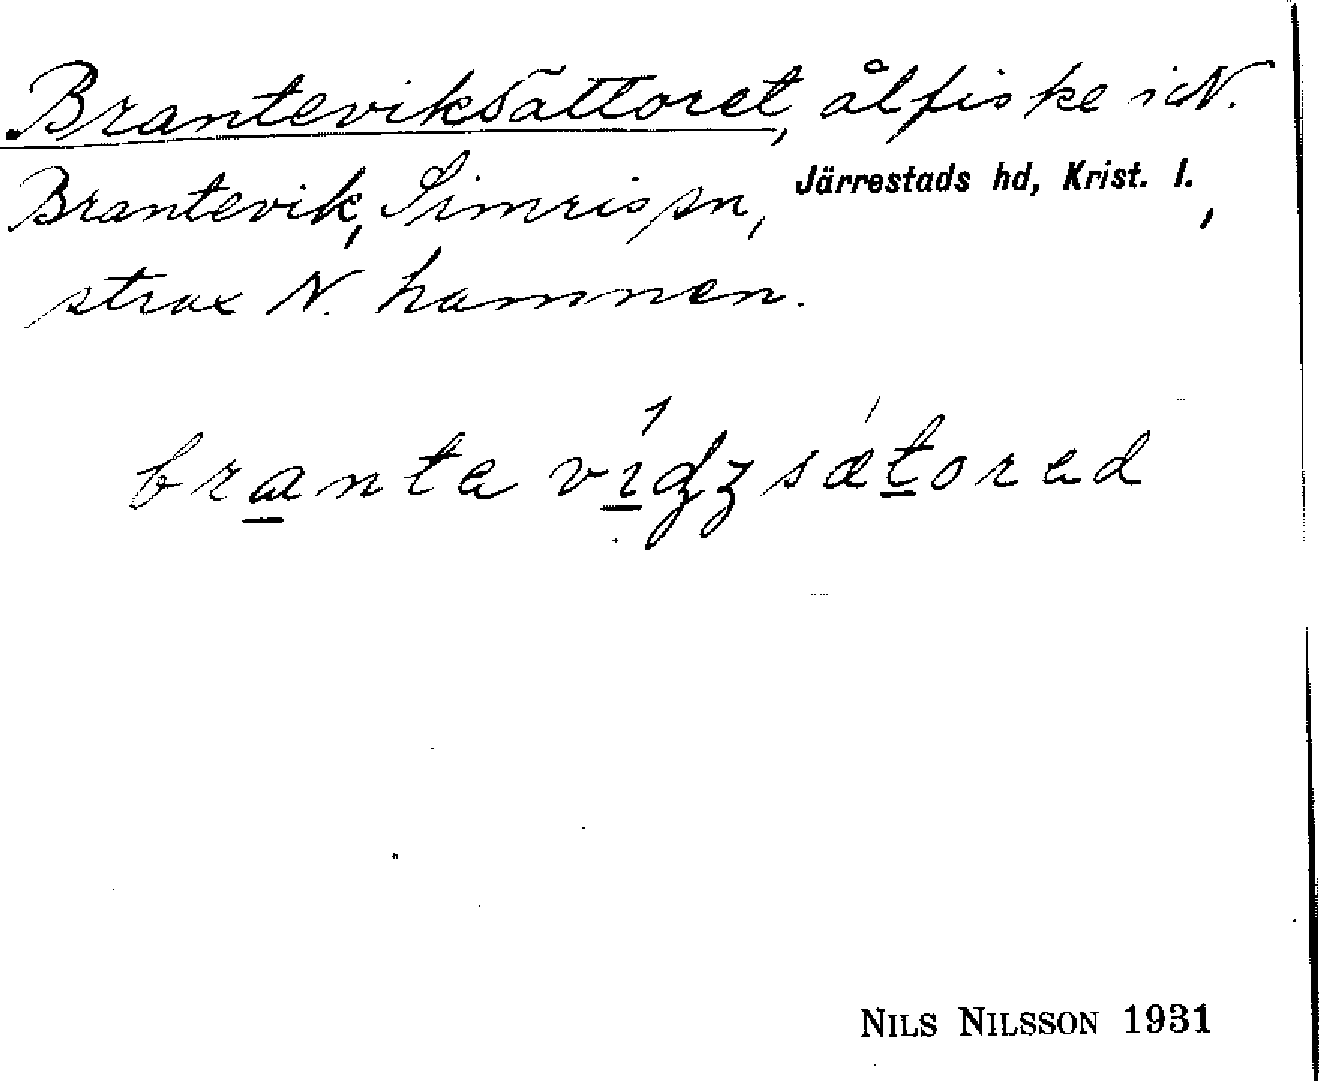 Branteviksättoret, ålfiske i N.
Brantevik, Simris sn, Järrestads hd, Krist. l.,
strax N. hamnen.
NILS NILSSON 1931